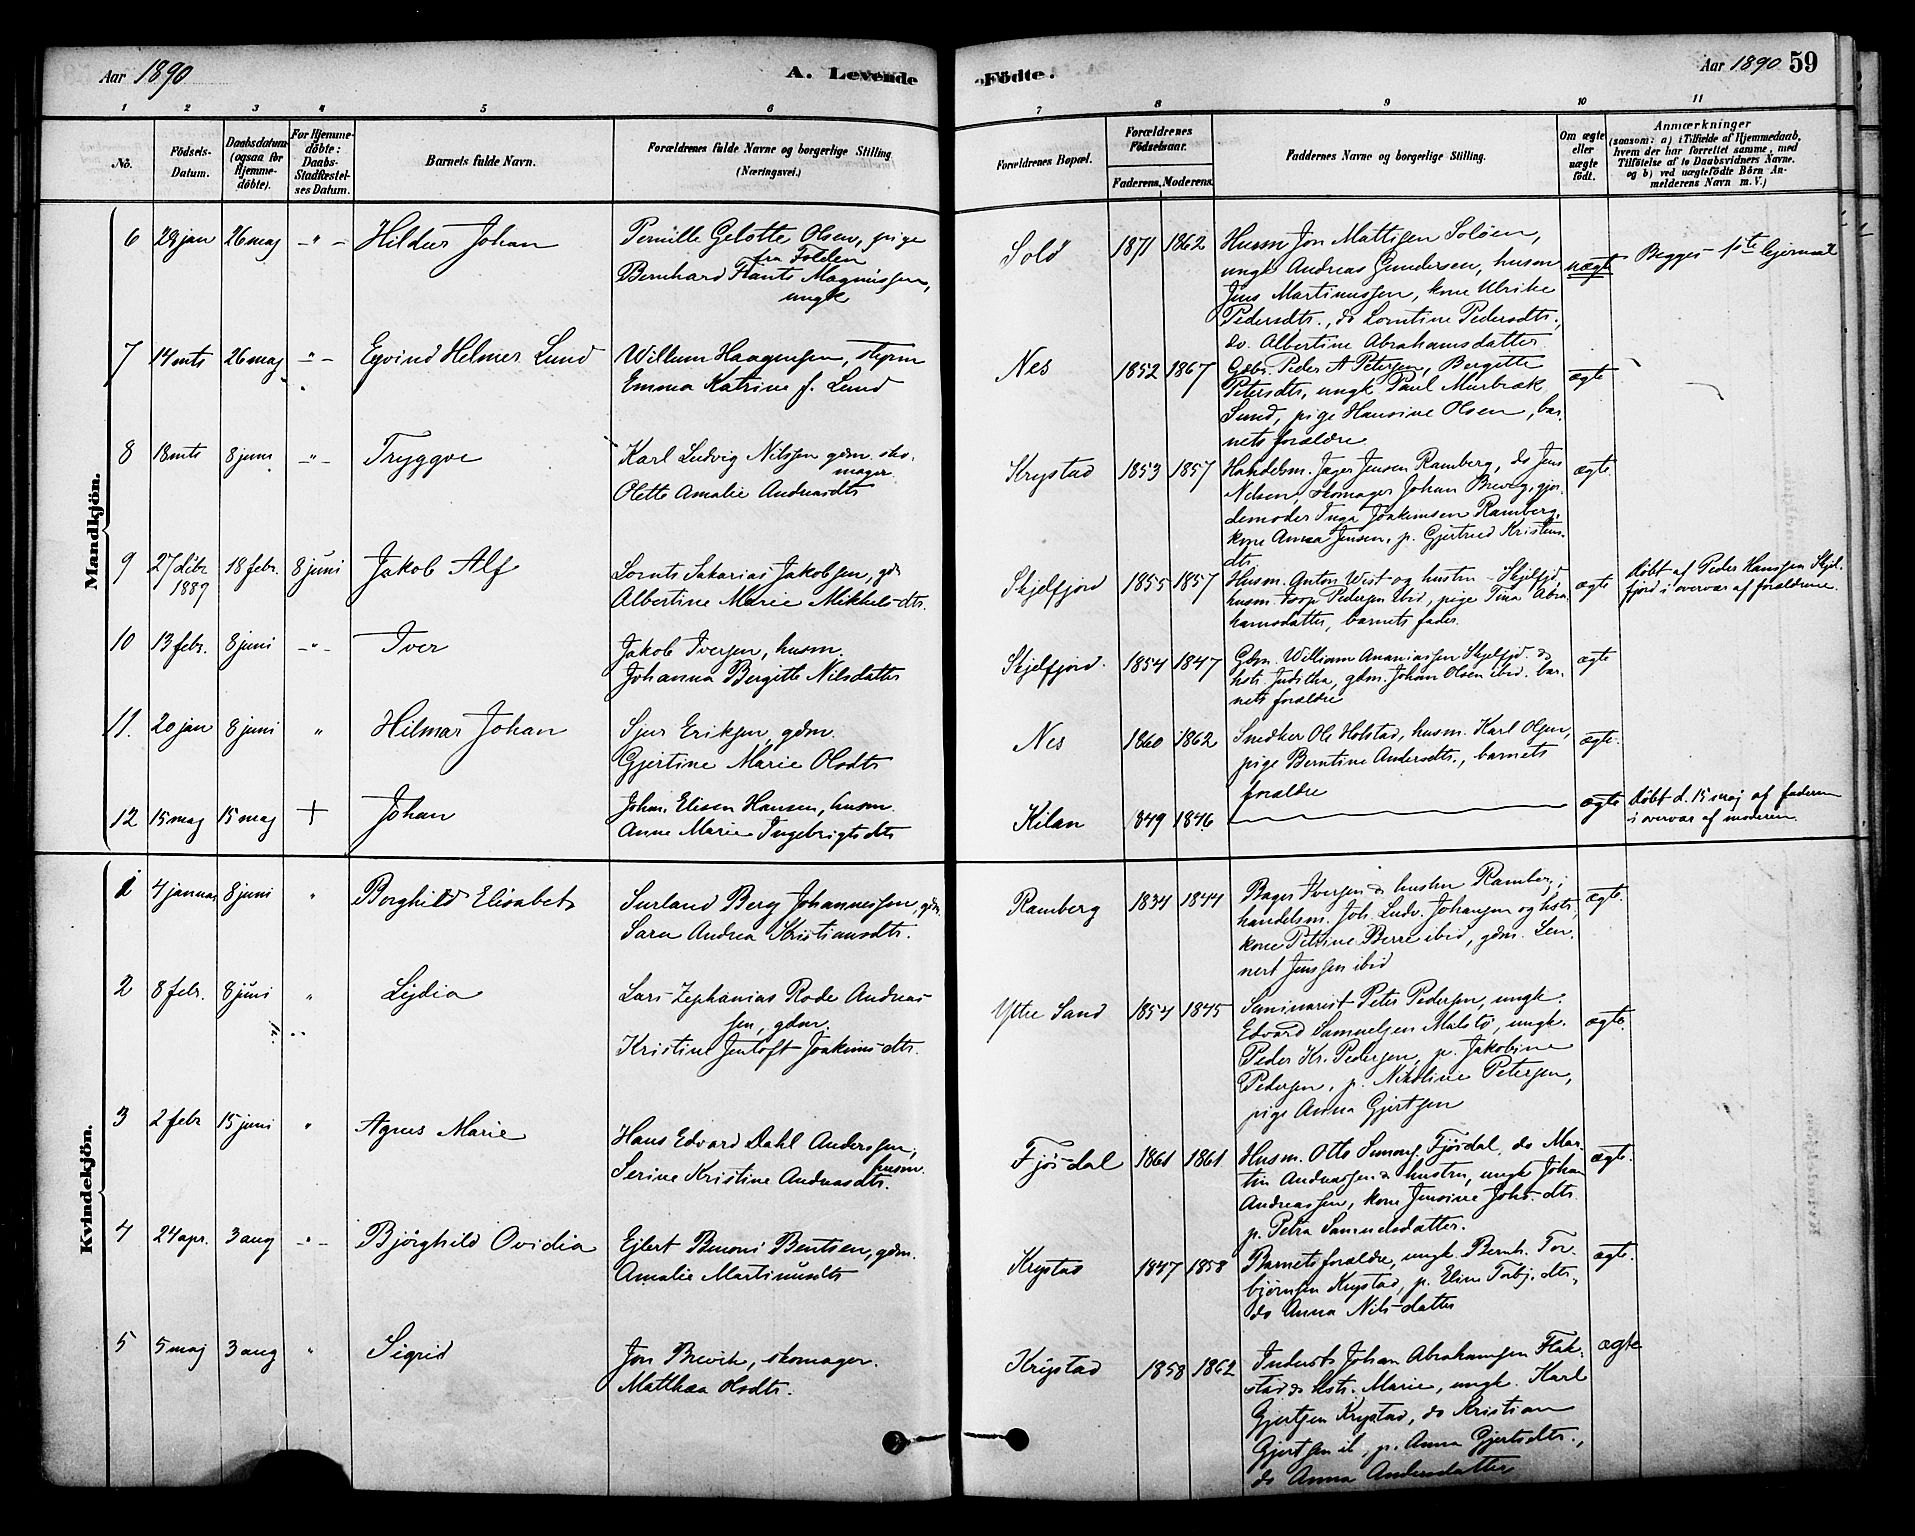 Aar 1890
A. Levende
Födte.
Aar 1890 59
1 2 3 4 5 6 7 8 9 10 11
No.
Födsels-
Datum.
Daabsdatum
(ogsaa for
Hjemme-
döbte).
For Hjemme-
döbte:
Daabs-
Stadfæstel-
ses Datum.
Barnets fulde Navn.
Forældrenes fulde Navne og borgerlige Stilling
(Næringsvei.)
Forældrenes Bopæl.
Forældrenes
Födselsaar.
Faderens. Moderens.
Faddernes Navne og borgerlige Stilling.
Om ægte
eller
uægte
födt.
Anmærkninger
(saasom: a) i Tilfælde af Hjemmedaab,
hvem der har forrettet samme, med
Tilföielse af to Daabsvidners Navne.
og b) ved uægtefödte Börn An-
melderens Navn m. V.)
Mandkjön.
6 29 jan 26 maj -"- Hildur Johan
Pernille Gelotte Olsen, pige
fra Folden
Bernhard Hants Magnussen,
ungk
Sold 1871 1862
Husm Jon Mattisen Soløen,
ungk Andreas Gundersen, husm
Jens Martinussen, kone Ulrike
Pedersdtr., do Lorntine Pedersdtr.,
do. Albertine Abrahamsdatter
uægte
Begges 1ste lejermaal
7 14 mts 26 maj -"- Eyvind Helmer Lund
Willum Haagensen, styrm
Emma Katrine f. Lund
Nes 1852 1867
Gbr. Peder A Petersen, Bergitte
Petersdtr, ungk Paul Murbræk
Sund, pige Hansine Olsen, bar-
nets forældre
ægte
8 18 mts 8 juni -"- Tryggve
Karl Ludvig Nilssen gdm. sko-
mager
Olette Amalie Andreasdtr
Krystad 1853 1857
Handelsm. Jager Jensen Ramberg, do Jens
Nilsen, skomager Johan Brevig, gjor-
demoder Inga Joakimsen Ramberg,
kone Anna Jensen, p. Gjertrud Kristens-
dtr.
ægte
9 27 debr 1889 18 febr. 8 juni Jakob Alf
Lornts Sakarias Jakobsen, gdm
Albertine Marie Mikkels-dtr.
Skjelfjord 1855 1857
Husm. Anton West og hustru Skjelfjd,
husm. Joop Pedersen ibid, pige Tina Abra-
hamsdatter, barnets fader.
ægte
døbt af Peder Hanssen Skjel-
fjord i overvær af forældrene.
10 13 febr. 8 juni -"- Iver
Jakob Iversen, husm.
Johanna Bergitte Nilsdatter
Skjelfjord. 1854 1847
Gdm. William Ananiassen Skjelfjd. &
hstr. Juditha, gdm. Johan Olsen ibid. bar-
nets forældre
ægte
11. 20 jan 8 juni " Hilmar Johan
Sjur Eriksen, gdm.
Gjertine Marie Olsdtr
Nes 1860 1862
Snedker Ole Holstad, husm. Karl Olsen,
pige Berntine Andersdtr., barnets
forældre
ægte.
12 15 maj 15 maj + Johan
Johan Elisen Hansen, husm.
Anne Marie Ingebrigtsdtr
Kilan 1849 1846
ægte
døbt d. 15 maj af faderen
i overvær af moderen.
Kvindekjön.
1 4 januar 8 juni " Borghild Elisabet
Surland Berg Johannessen, gdm.
Sara Andrea Kristiansdtr.
Ramberg 1834 1844
Bager Iversen & hustru Ramberg,
handelsm. Joh. Ludv. Johansen og hstr,
kone Petrine Berre ibid, gdm. Len-
nert Jenssen ibid
ægte.
2 8 febr. 8 juni " Lydia
Lars Zephanias Rode Andreas-
sen, gdm.
Kristine Jentoft Joakims-dtr.
Yttre Sand 1854 1845
Seminarist Peter Pedersen, ungk.
Edvard Samuelsen Malstø, ungk.
Peder Kr. Pedersen, p. Jakobine
Pedersen, p. Nikoline Petersen,
pige Anna Gjertsen
ægte.
3 2 febr 15 juni " Agnes Marie
Hans Edvard Dahl Anderssen,
husm.
Serine Kristine Andreasdtr.
Fjøsdal 1861 1861
Husm. Otto Simons. Fjøsdal, do Mar-
tin Andreassen & hustru, ungk Johan
Andreassen, kone Jensine Johs-dtr.
p. Petra Samuelsdatter.
ægte.
4 24 apr. 3 aug -"- Bjørghild Ovidia
Ejlert Benoni Bentsen, gdm.
Amalie Martinusdtr
Krystad 1847 1858
Barnets forældre, ungk. Bernh. Tor-
bjørnsen Krystad, p. Eline Torbj.dtr,
do Anna Nils-datter
ægte.
5 5 maj 3 aug " Sigrid
Jon Brevik, skomager.
Matthea Olsdtr.
Krystad 1858 1862
Inderst Johan Abrahamsen Flak-
stad & hstr. Marie, ungk. Karl
Gjertsen Krystad, do Kristian
Gjertsen ib, p. Anna Gjertsdtr.,
do Anna Andersdatter
ægte